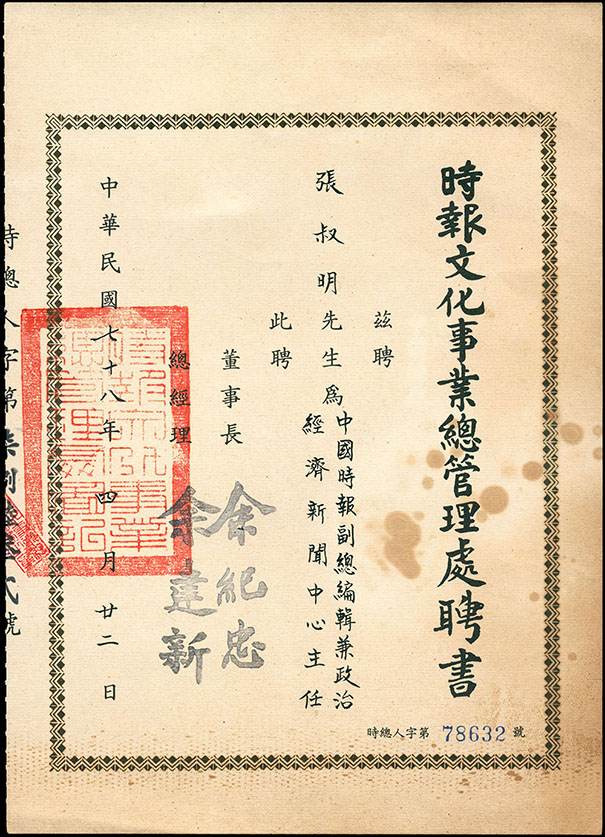 時報文化事業總管理處聘書
茲聘
張叔明先生為中國時報副總編輯兼政治
經濟新聞中心主任
此聘
董事長
余紀忠
總經理
余建新
中華民國七十八年四月廿二日
時總人字第 78632 號
時總人字第柒捌陸叁弍號